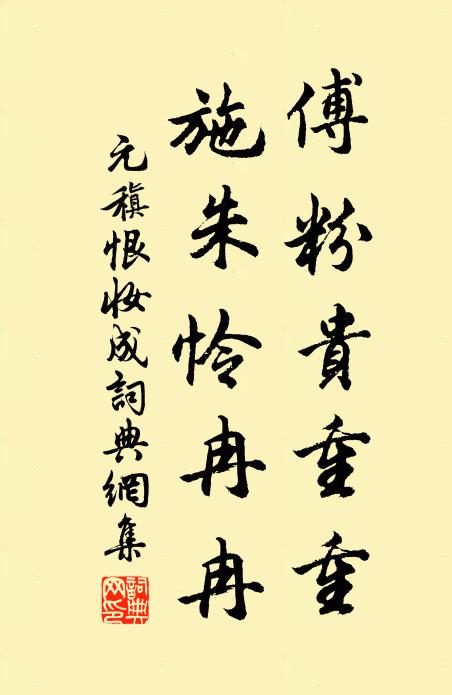 傅粉貴重重
施朱怜冉冉
元稹恨妝成詞典網集
詞典網印